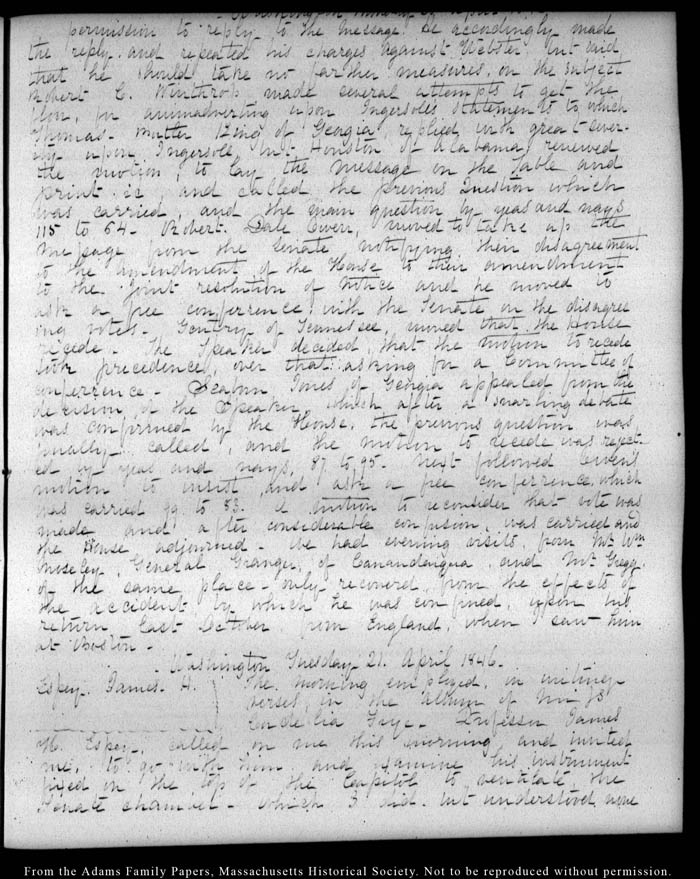 permission to reply to the message. He accordingly made
the reply. and repeated his charges against Webster, but said
that he should take no farther measures, on the subject
Robert C. Winthrop made several attempts to get the
floor, for animadverting upon Ingersoll's statements to which
Thomas Butler King of Georgia, replied with great sever-
ity upon Ingersoll, but Houston of Alabama, renewed
the motion, to lay the message on the table and
print it and called the previous Question which
was carried, and the main question by yeas and nays
115 to 64. Robert Dale Owen, moved to take up the
message from the Senate notifying their disagreement
to the amendment, of the House to their amendment
to the Joint resolution of Notice and he moved to
ask a free conferrence, with the Senate on the disagree
ing votes. Gentry of Tennessee, moved that the House
recede. The Speaker decided, that the motion to recede
took precedence, over that asking for a Committee of
conferrence. Seaborn Jones of Georgia appealed from the
decision, of the Speaker, which after a snarling debate
was confirmed by the House, the previous question was
finally called, and the motion to recede was reject-
ed by yeas and nays, 87 to 95. Next followed Owen's
motion to insist, and ask a free conferrence, which
was carried 99 to 83. A motion to reconsider that vote was
made and after considerable confusion, was carried and
the House adjourned. We had evening visits from Mr Wm
Moseley, General Granger, of Canandaigua, and Mr Gregg.
of the same place. only recovered, from the effects of
the accident by which he was confined, upon his
return last October from England, when I saw him
at Boston.
Washington Tuesday 21. April 1846.
Espey. James. H. The morning employed, in writing
verses, in the album of
Cordelia Professor James
H. Espey, called on me this morning and invited
me, to go with him and examine his instrument
fixed on the top of the Capitol to ventilate the
Senate chamber. which I did. but understood none
From the Adams Family Papers, Massachusetts Historical Society. Not to be reproduced without permission.